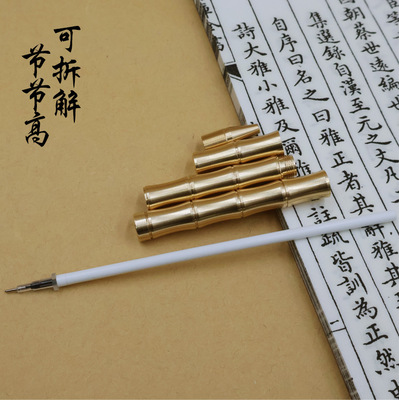 可拆解
节节高
朝蔡世遠編
集選錄自漢至元之文凡
自序曰名之曰雅正者其解雅其
詩大雅小雅及爾
註疏皆訓為正然